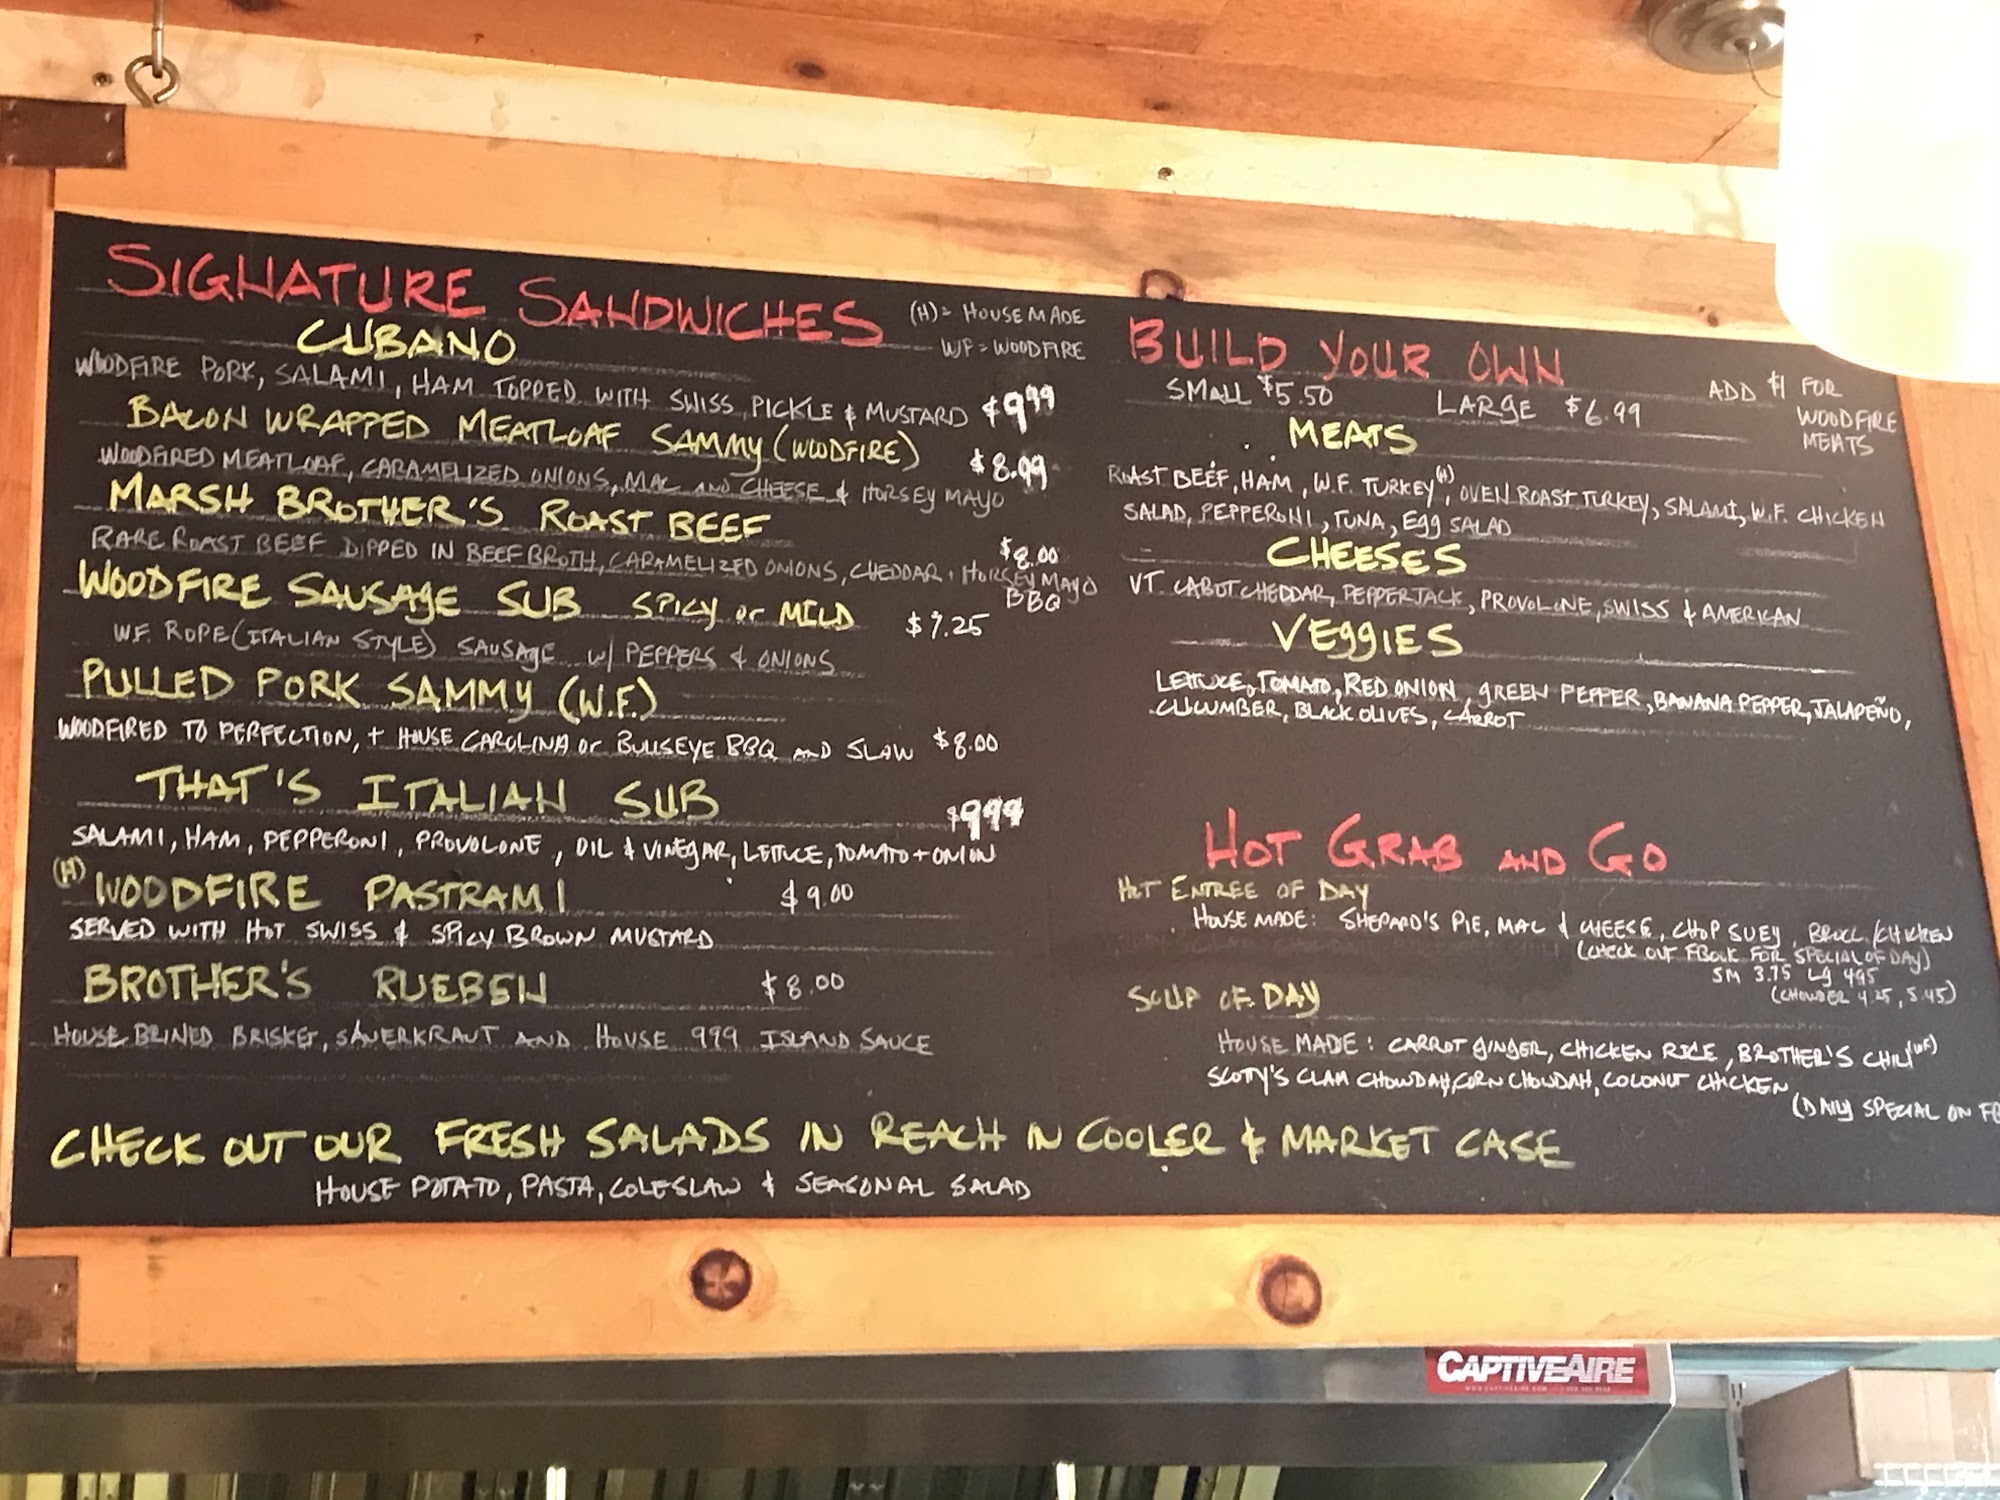 SIGNATURE SANDWICHES
(H) = HOUSE MADE
WF = WOODFIRE
CUBANO
WOODFIRE PORK, SALAMI, HAM TOPPED WITH SWISS, PICKLE & MUSTARD $9.99
BACON WRAPPED MEATLOAF SAMMY (WOODFIRE) $8.99
WOODFIRED MEATLOAF, CARAMELIZED ONIONS, MAC AND CHEESE & HORSEY MAYO
MARSH BROTHER'S ROAST BEEF $8.00
RARE ROAST BEEF DIPPED IN BEEF BROTH, CARAMELIZED ONIONS, CHEDDAR, HORSEY MAYO
BBQ
WOODFIRE SAUSAGE SUB SPICY or MILD $7.25
W.F. ROPE (ITALIAN STYLE) SAUSAGE w/ PEPPERS & ONIONS
PULLED PORK SAMMY (W.F.)
WOODFIRED TO PERFECTION, + HOUSE CAROLINA or BULLSEYE BBQ AND SLAW $8.00
THAT'S ITALIAN SUB $9.99
SALAMI, HAM, PEPPERONI, PROVOLONE, OIL & VINEGAR, LETTUCE, TOMATO + ONION
(H) WOODFIRE PASTRAMI $9.00
SERVED WITH HOT SWISS & SPICY BROWN MUSTARD
BROTHER'S RUEBEN $8.00
HOUSE BRINED BRISKET, SAUERKRAUT AND HOUSE 999 ISLAND SAUCE
BUILD YOUR OWN
SMALL $5.50 LARGE $6.99
ADD $1 FOR
WOODFIRE
MEATS
MEATS
ROAST BEEF, HAM, W.F. TURKEY (H), OVEN ROAST TURKEY, SALAMI, W.F. CHICKEN
SALAD, PEPPERONI, TUNA, EGG SALAD
CHEESES
VT. CABOT CHEDDAR, PEPPERJACK, PROVOLONE, SWISS & AMERICAN
VEGGIES
LETTUCE, TOMATO, RED ONION, GREEN PEPPER, BANANA PEPPER, JALAPEÑO,
CUCUMBER, BLACK OLIVES, CARROT
HOT GRAB AND GO
HOT ENTREE OF DAY
HOUSE MADE: SHEPARD'S PIE, MAC & CHEESE, CHOP SUEY, BROCC./CHICKEN
(CHECK OUT FBOOK FOR SPECIAL OF DAY)
SM 3.75 LG 4.95
(CHOWDER 4.25, 5.45)
SOUP OF DAY
HOUSE MADE: CARROT GINGER, CHICKEN RICE, BROTHER'S CHILI (WF)
SCOTTY'S CLAM CHOWDAH, CORN CHOWDAH, COCONUT CHICKEN
(DAILY SPECIAL ON FB
CHECK OUT OUR FRESH SALADS IN REACH IN COOLER & MARKET CASE
HOUSE POTATO, PASTA, COLESLAW & SEASONAL SALAD
CAPTIVEAIRE